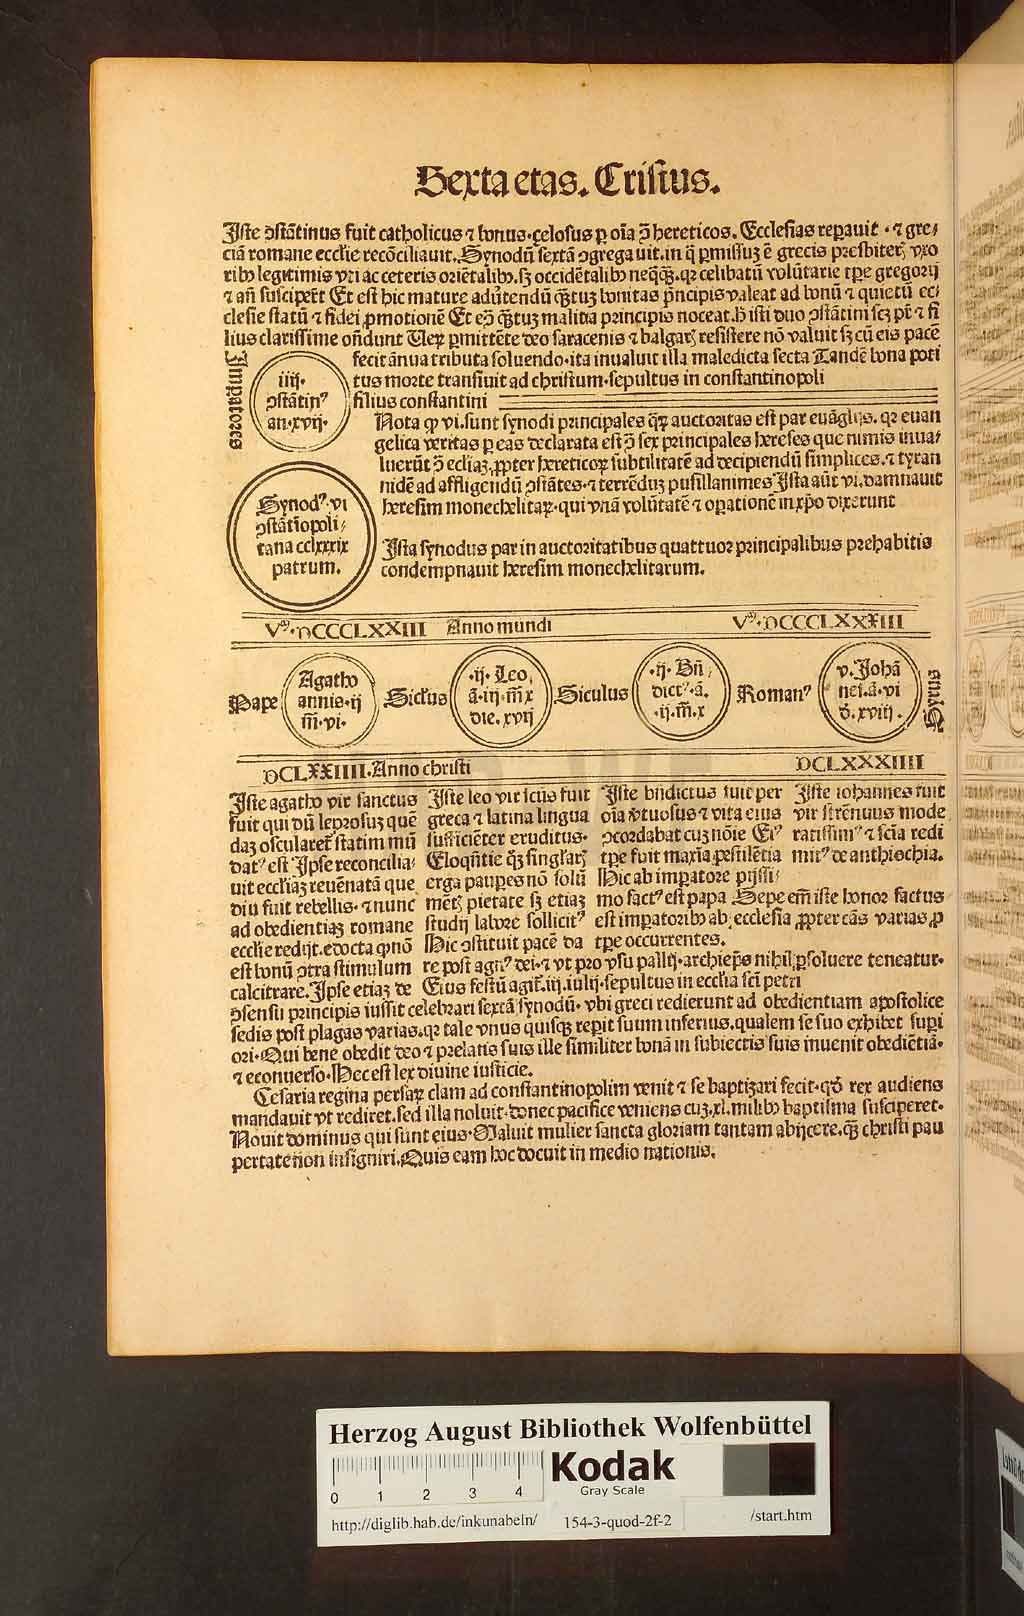 Sexta etas. Cristus.
Iste ↄstātinus fuit catholicus ⁊ bonus. çelosus ꝑ oīa ↄ̄ hereticos. Ecclesias reꝑauit. ⁊ gre⸗
ciā romane ecclie recōciliauit. Synodū sextā ↄgregauit. in q̄ ꝑmissuȝ ē grecis presbiteꝝ vxo
ribꝰ legitimis vti ac ceteris oriētalibꝰ. sȝ occidētalibꝰ neqꝗȝ. qꝛ celibatū volūtarie tꝑe gregorij
⁊ an̄ susciper̄t Et est hic mature aduītendū ꝗ̄tuȝ bonitas pͥncipis valeat ad bonū ⁊ quietū ec⸗
clesie statū ⁊ fidei ꝓmotionē Et eↄ̄ ꝗ̄tuȝ malitia principis noceat. h̄ isti duo ↄstātini scȝ pr̄ ⁊ fi
lius clarissime on̄dunt Ueꝝ ꝑmittēte deo saracenis ⁊ balgaꝝ resistere nō valuit sȝ cū eis pacē
fecit ānua tributa soluendo. ita inualuit illa maledicta secta Tandē bona poti
tus morte transiuit ad christum. sepultus in constantinopoli
filius constantini
Imperatores
iiij.
ↄstātinꝰ
an. xvij.
Nota ꝙ vi. sunt synodi principales qꝝ auctoritas est par euāglijs. qꝛ euan
gelica veritas ꝑ eas declarata est ↄ̄ sex principales hereses que nimis inua⸗
luerūt ↄ̄ ecliaȝ. ꝓpter hereticoꝝ subtilitatē ad decipiendū simplices. ⁊ tyran
nidē ad affligendū ↄstātes. ⁊ terrēduȝ pusillanimes Ista aūt vi. damnauit
heresim monechelitaꝝ. qui vnā volūtatē ⁊ oꝑationē in xp̄o dixerunt
Synodꝰ. vi
ↄstātīopoli⸗
tana cclxxxix
patrum.
Ista synodus par in auctoritatibus quattuor principalibus prehabitis
condempnauit heresim monechelitarum.
Vᵐ. DCCCLXXIII Anno mundi Vᵐ. DCCCLXXXIII
Pape
Agatho
annis. ij
m̄. vi.
Sicľus
.ij. Leo,
ā. iij. m̄. x
die. xvij
Siculus
.ij. Bn̄⸗
dictꝰ. ā.
.ij. m̄. x
Romanꝰ
v. Johā
nes. ā. vi
d̄. xviij.
Syrus
DCLXXIIII. Anno christi DCLXXXIIII
Iste agatho vir sanctus
fuit qui dū leprosuȝ quē
daȝ oscularet̄ statim mū
datꝰ est Ipse reconcilia⸗
uit eccliaȝ reuēnatā que
diu fuit rebellis. ⁊ nunc
ad obedientiaȝ romane
ecclie redijt. edocta ꝙ nō
est bonū ↄtra stimulum
calcitrare. Ipse etiaȝ de
Iste leo vir scūs fuit
greca ⁊ latina lingua
sufficiēter eruditus.
Eloqn̄tie qꝫ singlarꝭ
erga pauꝑes nō solū
mētꝭ pietate sȝ etiaȝ
studij labore sollicitꝰ
Hic ↄstituit pacē da
re post agnꝰ dei. ⁊ vt pro vsu pallij. archiep̄s nihil ꝑsoluere teneatur.
Eius festū agit̄. iij. iulij. sepultus in ecclia sc̄i petri
Iste bn̄dictus fuit per
oīa v̄tuosus ⁊ vita eius
ↄcordabat cuȝ nōie Eiꝰ
tꝑe fuit maxīa pestilētia
Hic ab imꝑatore prissi⸗
mo factꝰ est papa Sepe em̄ iste honor factus
est imꝑatoribꝰ ab, ecclesia ꝓpter cās varias, ꝓ
tꝑe occurrentes.
Iste iohannes fuit
vir strēnuus mode
ratissimꝰ ⁊ scīa redi
mitꝰ de anthiochia.
ↄsensu principis iussit celebrari sextā synodū. vbi greci redierunt ad obedientiam apostolice
sedis post plagas varias. qꝛ tale vnus quisqꝫ reꝑit suum inferius. qualem se suo exhibet suꝑi
ori. Qui bene obedit deo ⁊ prelatis suis ille similiter bonā in subiectis suis inuenit obediētiā.
⁊ econuerso. Hec est lex diuine iusticie.
Cesaria regina persaꝝ clam ad constantinopolim venit ⁊ se baptizari fecit. qd̄ rex audiens
mandauit vt rediret. sed illa noluit. donec pacifice veniens cuȝ. xl. milibꝰ baptisma susciperet.
Nouit dominus qui sunt eius. Maluit mulier sancta gloriam tantam abijcere. ꝗ̄ christi pau
pertate non insigniri. Quis eam hoc docuit in medio nationis.
Herzog August Bibliothek Wolfenbüttel
0 1 2 3 4
Kodak
Gray Scale
http://diglib.hab.de/inkunabeln/ 154-3-quod-2f-2 /start.htm